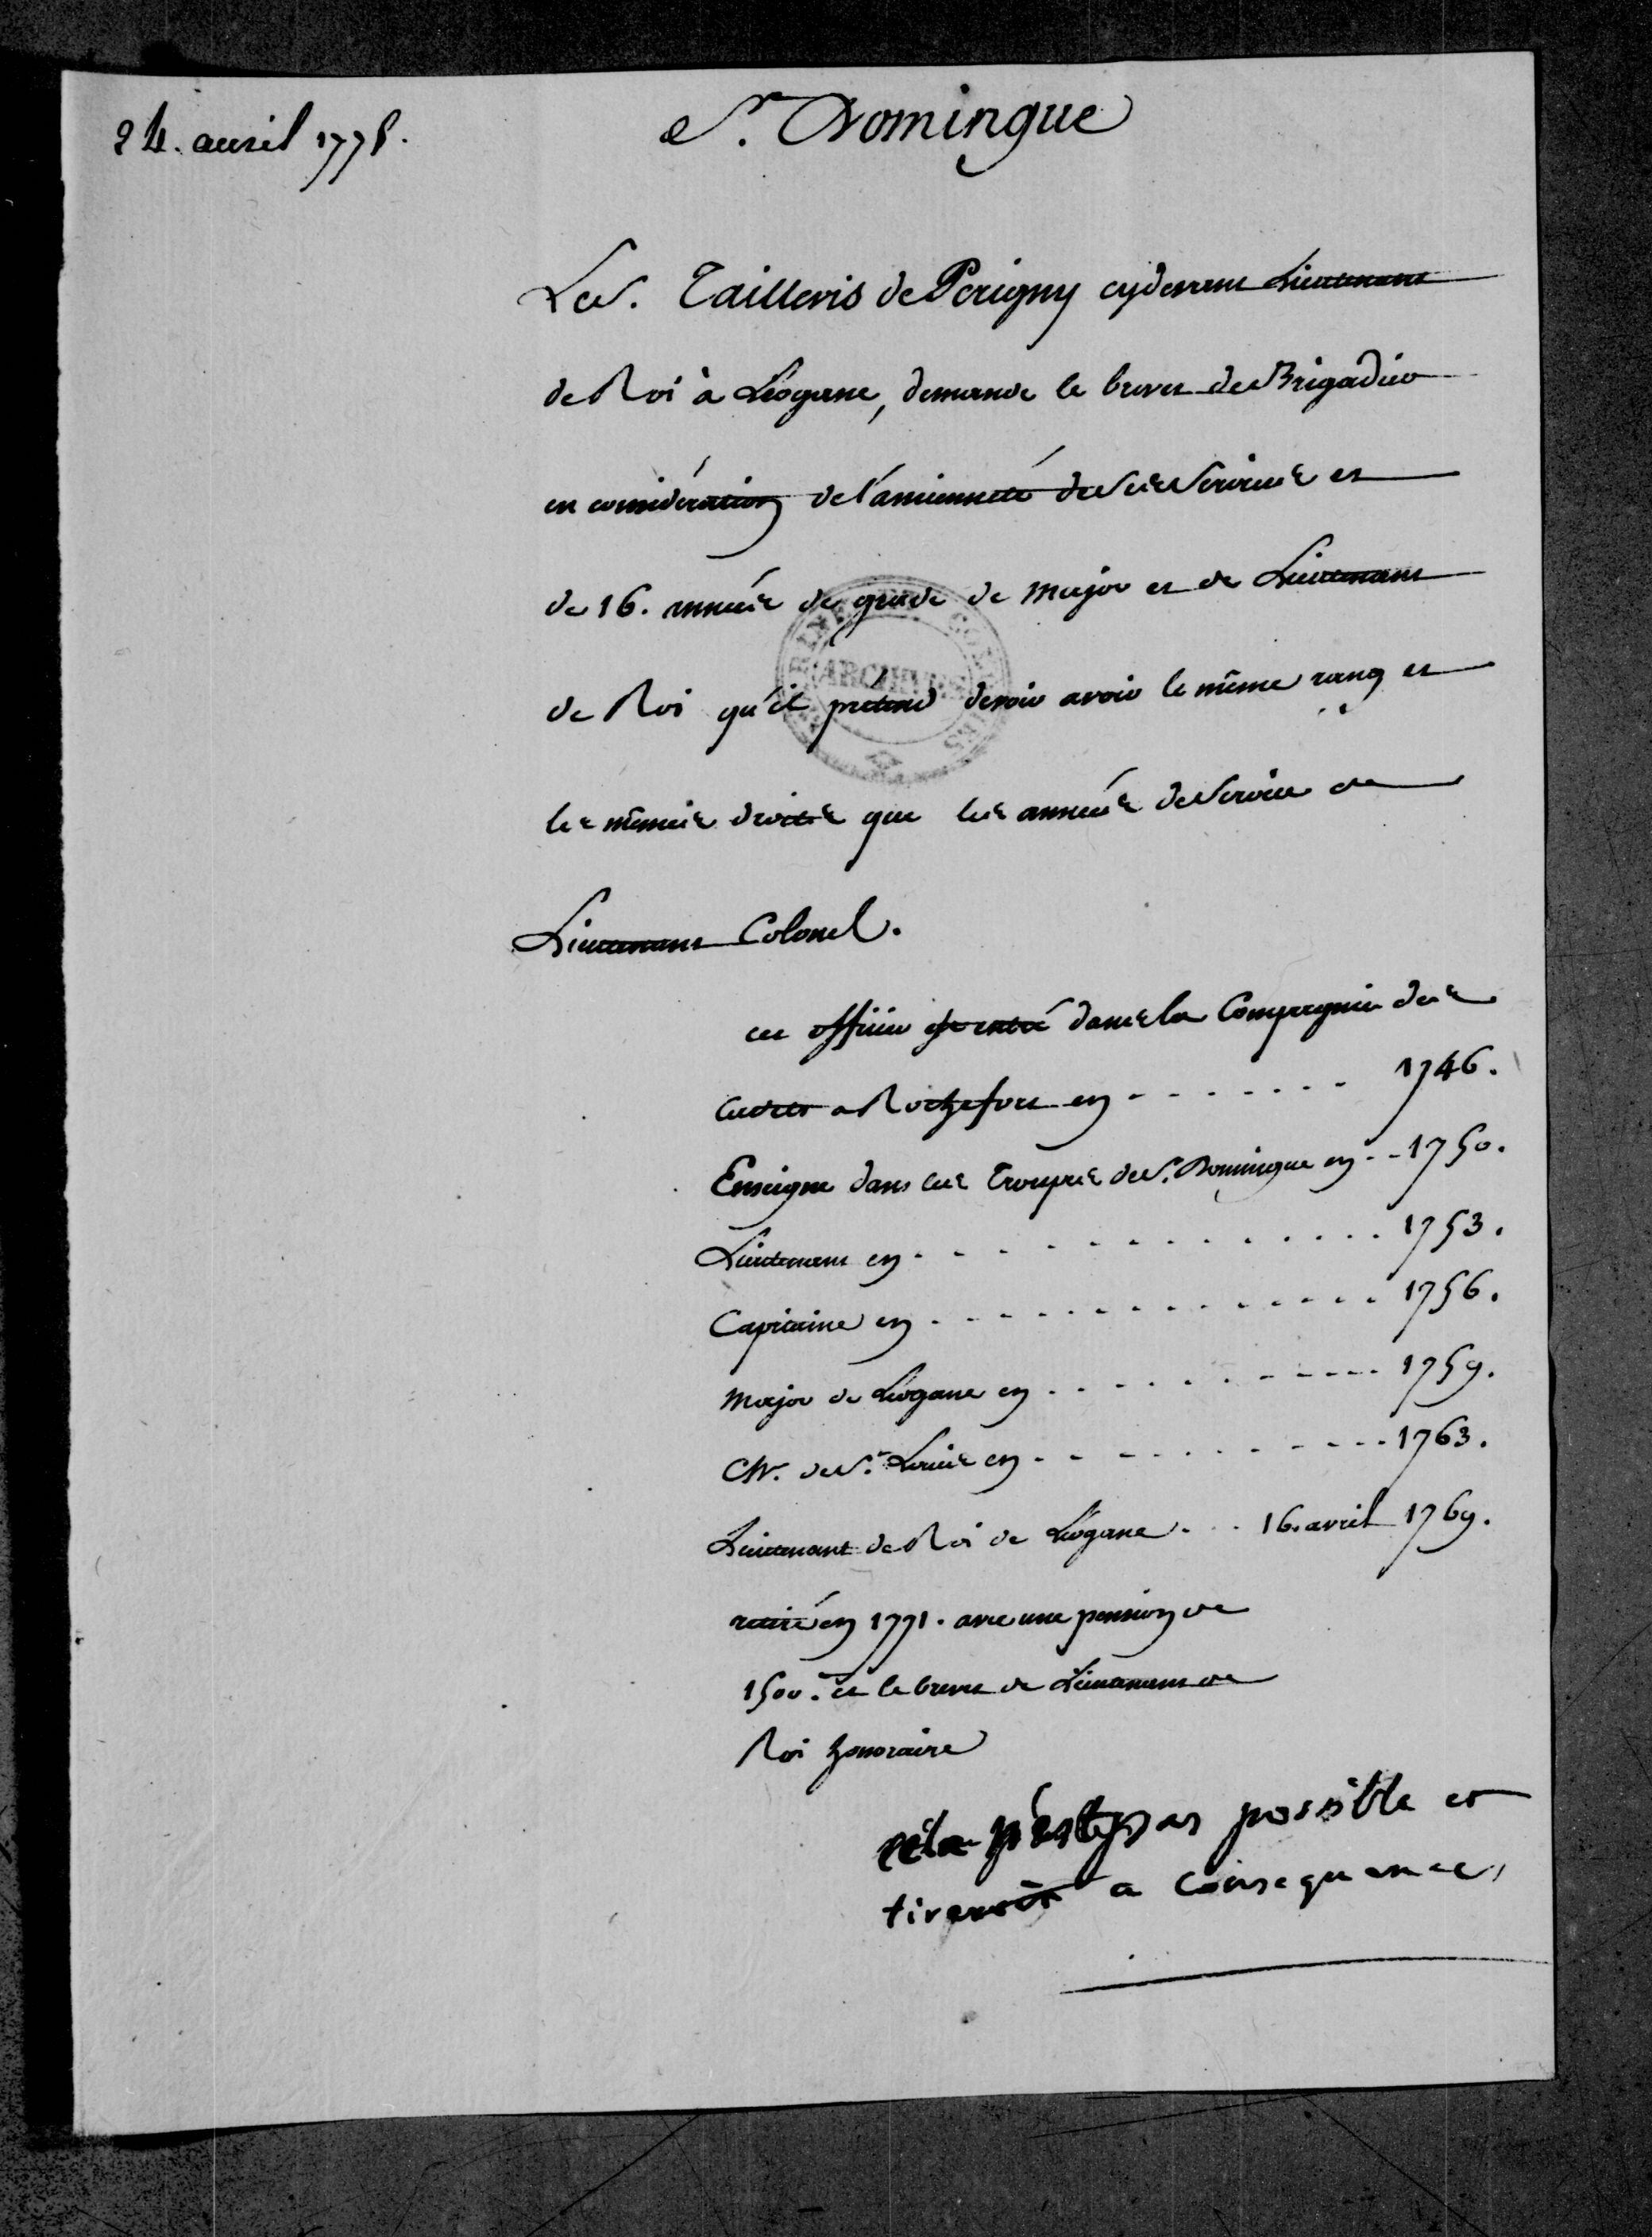 24. avril 1775.
St. Domingue
Le S. Taillevis de Perigny cydevant Lieutenant
de Roi à Léogane, demande le brevet de Brigadier
en considération de l'ancienneté de ses services et
de 16. années de grade de Major et de Lieutenant
de Roi qu'il prétend devoir avoir le même rang et
les mêmes droits que les années de service de
Lieutenant Colonel.
ARCHIVES
COLONIES
cet officier est entré dans la Compagnie des
Cadets a Rochefort en 1746.
Enseigne dans les Troupes de S. Domingue en 1750.
Lieutenant en 1753.
Capitaine en 1756.
Major de Léogane en 1759.
Ch. de St. Louis en 1763.
Lieutenant de Roi de Léogane 16. avril 1769.
retiré en 1771. avec une pension de
1500.tt et le brevet de Lieutenant de
Roi honoraire
cela n'est pas possible et
tireroit a Consequence,